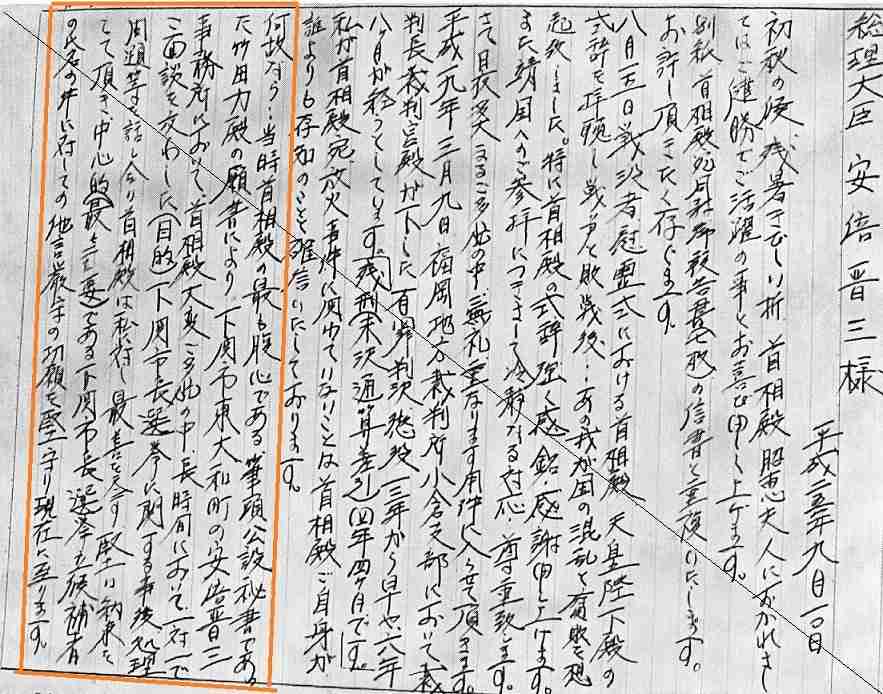 総理大臣 安倍晋三様
平成二五年九月一〇日
初秋の候、残暑きびしい折、首相殿、昭恵夫人におかれまし
てはご健勝でご活躍の事とお喜び申し上げます。
別紙、首相殿宛 の信書と重複いたします。
お許し頂きたく存じます。
八月一五日戦没者慰霊式における首相殿、天皇陛下殿の
式辞を拝聴し戦争で敗戦後‥あの我が国の混乱と を想
起致しました。特に首相殿の式辞強く感銘・感謝申し上げます。
また靖国へのご参拝につきまして冷静なる対応、尊重致します。
さて日夜 なるご多忙の中、無礼重なります用件に入らせて頂きます。
平成一九年三月九日、福岡地方裁判所小倉支部において裁
判長裁判官殿が下した有罪判決懲役一三年から早や六年
八ヶ月が経つとしています。残刑未決通算差引四年四ヶ月です。
私が首相殿宛、放火事件に関わっていないことは首相殿ご自身が
誰よりも存知のことと確信いたしております。
何故なら‥当時首相殿の最も腹心である筆頭公設秘書であっ
た竹田力殿の願書により、下関市東大和町の安倍晋三
事務所において、首相殿大変ご多忙の中、長時間において一対一で
ご面談を交わした(目的)下関市長選挙に関する事後処理
問題等の話し合い首相殿は私に対し最善を尽す 約束を
して頂き、中心的(最も重要)である下関市長選挙立候補者
の氏名の件に対しての他言厳守の 願を堅守り現在に至ります。